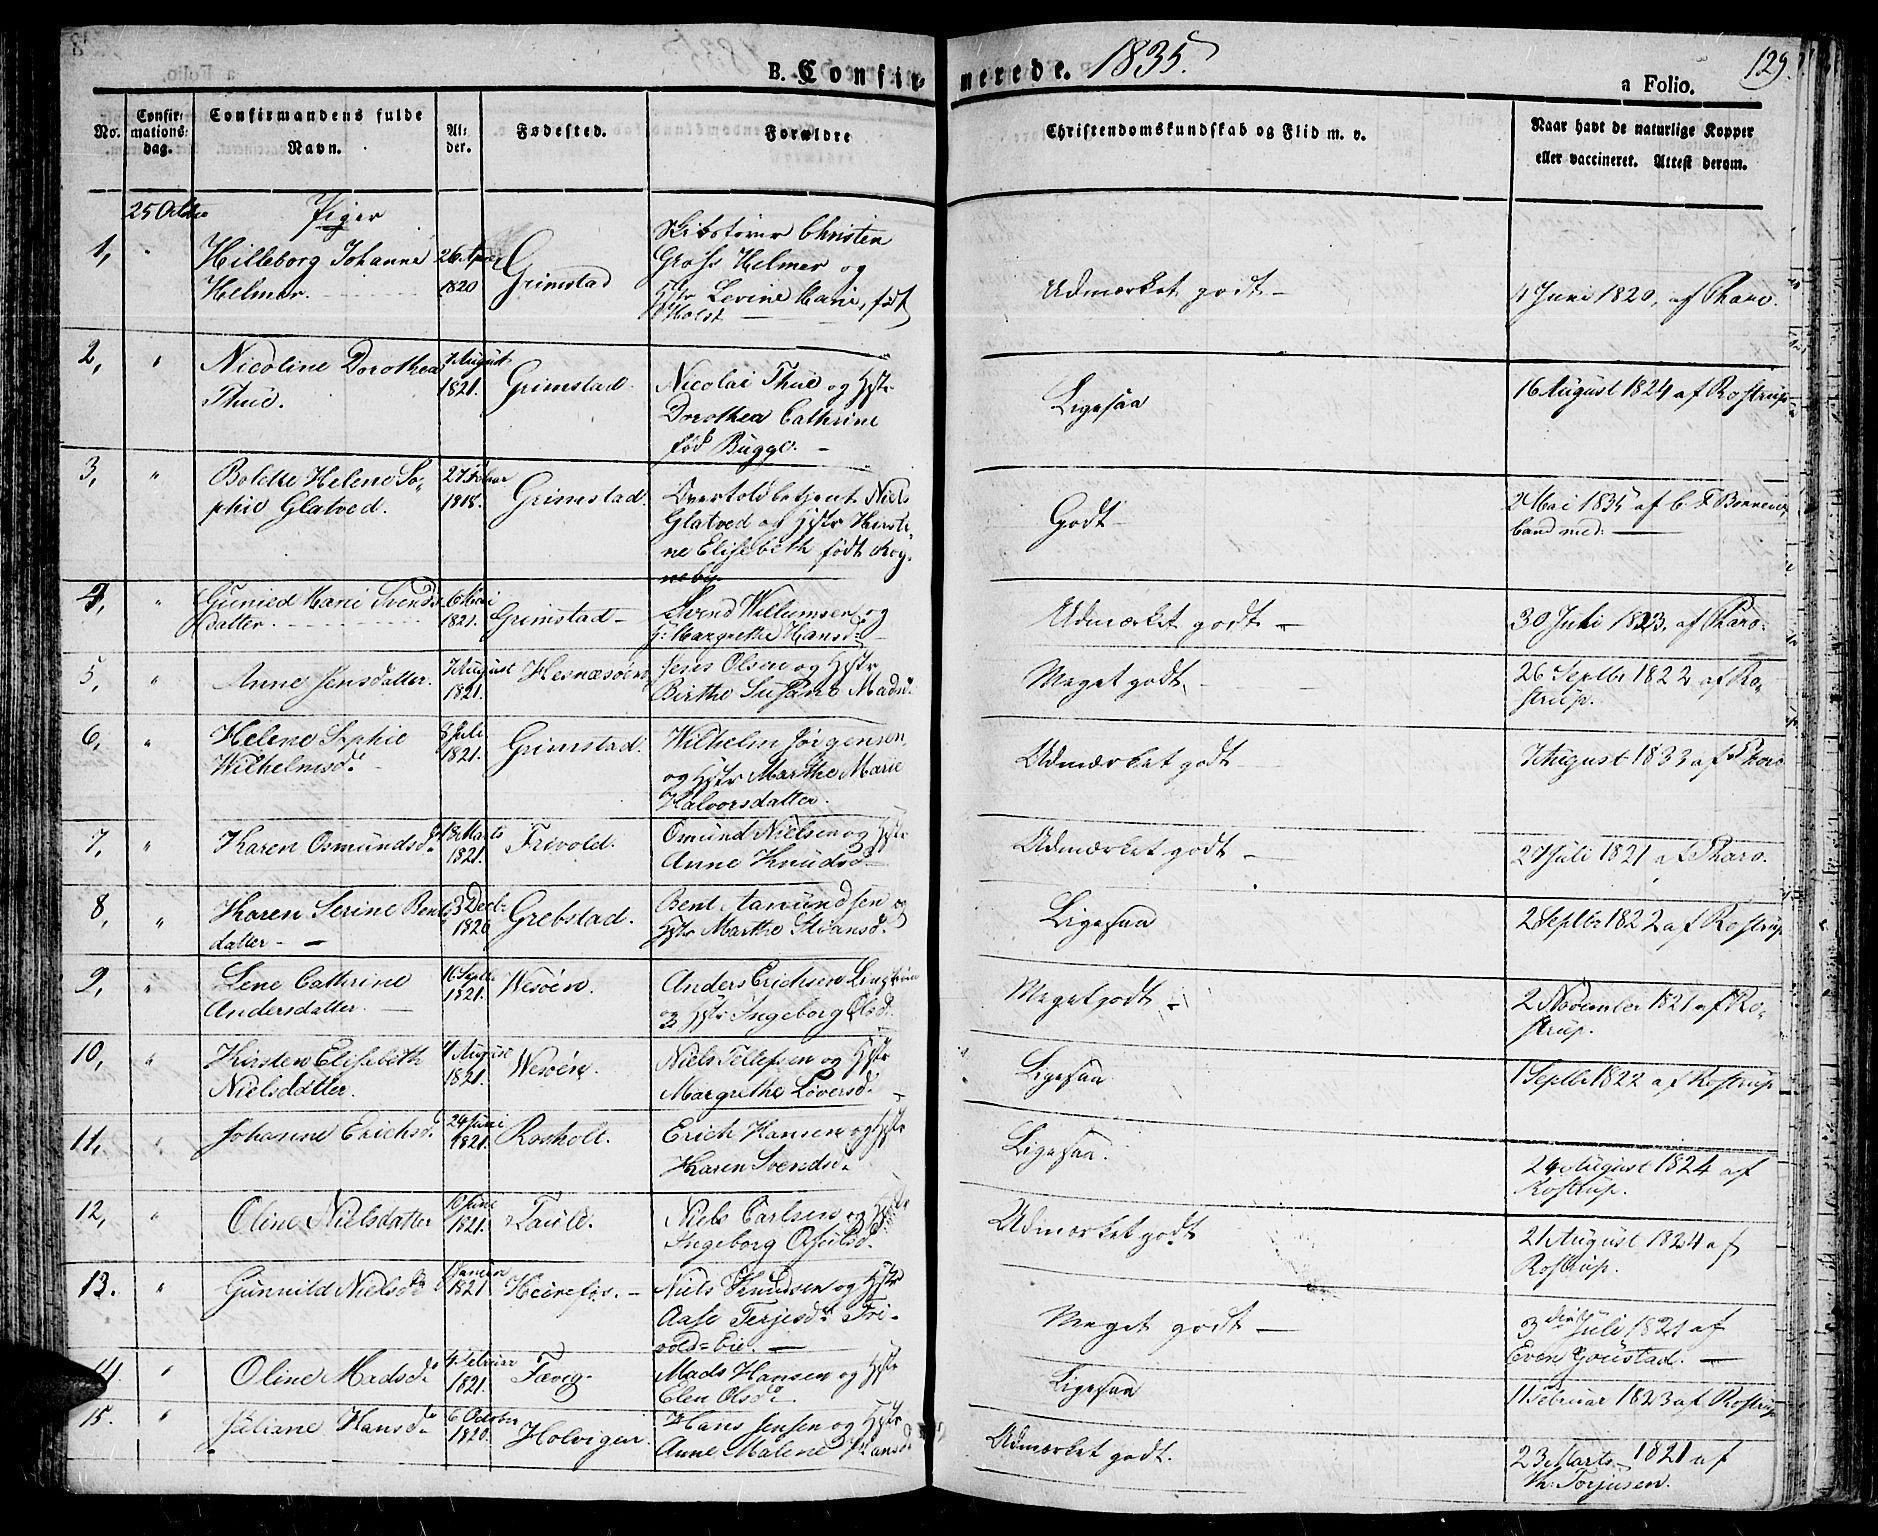 B. Confirmerede. 1835. 129.
a Folio.
No.
Confirmationsdag.
Confirmandens fulde Navn.
Alder.
Fødested.
Forældre
Christendomskundskab og Flid m. v.
Naar havt de naturlige Kopper eller vaccineret. Attest derom.
25 Octbr
Piger
1, " Hilleborg Johanne
Helmer.
26 April
1820
Grimstad
Christen
Gross Helmer og
Hstr Levine Marie, født
Holst
Udmærket godt
4 Juni 1820, af Tharo.
2, " Nicoline Dorothea
Thue.
7 August
1821.
Grimstad.
Nicolai Thue og Hstr
Dorothea Cathrine
fød Bugge.
Ligesaa
16 August 1824 af Rostrup
3, " Bolette Helene So-
phie Glatved.
27 Febuar
1818.
Grimstad.
Overtoldbetjent Niels
Glatved og Hstr Kirsti-
ne Elisebeth født Rog-
neby.
Godt
2 Mai 1835 af C F Bonnevie
cand med:
4, " Gunild Marie Svends
datter.
6 Mai
1821.
Grimstad
Svend Willumsen og
H: Margrethe Hansd:
Udmærket godt
30 Juli 1823, af Tharo.
5, " Anne Jensdatter.
7 August
1821.
Hesnæsøen
Jens Olsen og Hstr
Birthe Susanne Madsd:
Meget godt,
26 Septbr 1822 af Ro-
strup.
6, " Helene Sophie
Wilhelmsd:
8 Juli
1821.
Grimstad.
Wilhelm Jørgensen,
og Hstr Marthe Marie
Halvorsdatter.
Udmærket godt
7 August 1833 af Tharo
7, " Karen Osmundsd:
18 Marts
1821.
Frivold.
Osmund Nielsen og Hstr
Anne Knudsd:
Udmærket godt
27 Juli 1821 af Tharo.
8, " Karen Serine Bents
datter
3 Decbr
1820
Grebstad.
Bent Aamundsen og
Hstr Marthe
Ligesaa
2 Septbr 1822 af Rostrup
9, " Lene Cathrine
Andersdatter.
16 Septbr
1821.
Wesøen.
Anders Erichsen
og Hstr Ingeborg Olsd:
Meget godt
2 November 1821 af Ro-
strup.
10, " Kirsten Elisabeth
Nielsdatter.
4 August
1821.
Wesøen,
Niels Tellefsen og Hstr
Margrethe Løversd:
Ligesaa
1 Septbr 1822 af Rostrup
11, " Johanne Erichsd:
24 Juni
1821.
Rosholt.
Erich Hansen og Hstr
Karen Svendsd:
Ligesaa.
24 August 1824 af
Rostrup.
12, " Oline Nielsdatter
10 Juni
1821.
Niels Carlsen og Hstr
Ingeborg Osulsd:
Udmærket godt
21 August 1824 af
Rostrup.
13. " Gunnild Nielsd:
Januar
1821
Heirefos.
Niels Knudsen og Hstr
Aase Terjesd: Fri-
vold=Eie.
Meget godt
3 den Juli 1821 af
Even Goustad.
14. " Oline Madsd:
4 Februar
1821.
Fævig.
Mads Hansen og Hstr
Elen Olsd:
Ligesaa
11 Februar 1823 af Rostrup
15. " Juliane Hansd:
6 October
1820.
Holvigen.
Hans Jensen og Hstr
Anne Malene Hansd
Udmærket godt.
23 Marts 1821 af
Kn: Torjusen.